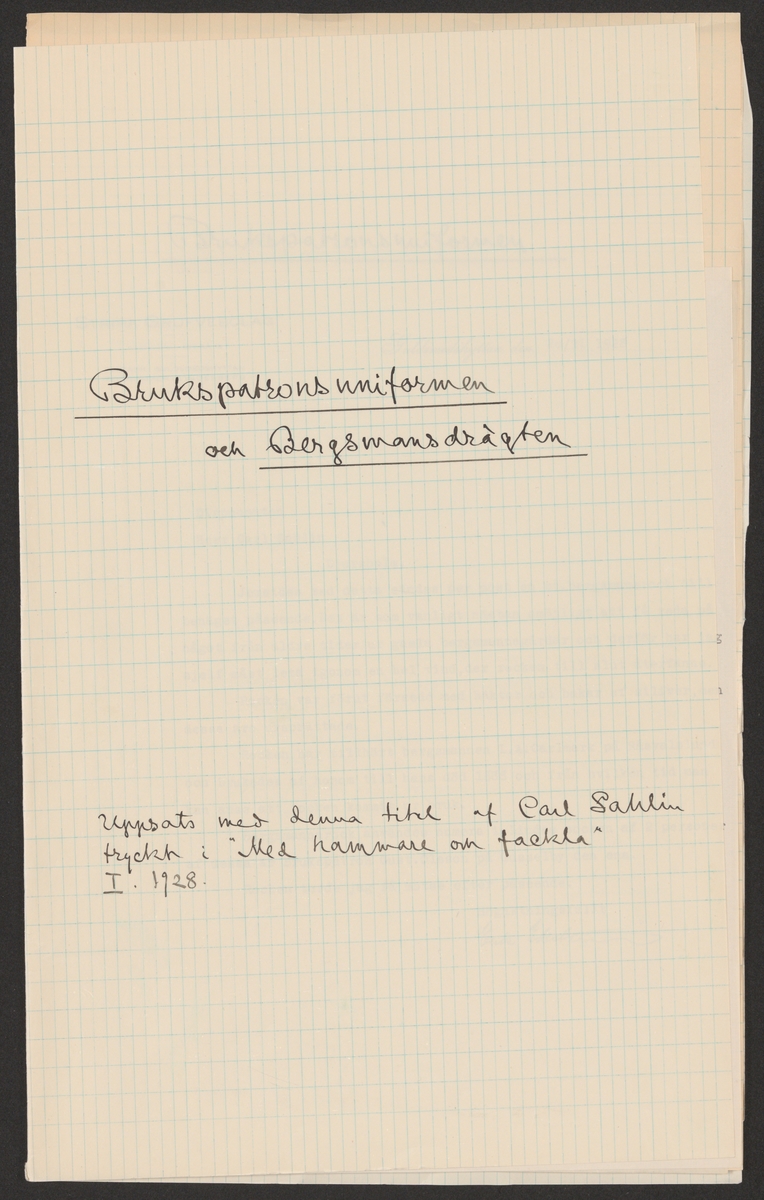 Brukspatronsuniformen
och Bergsmansdrägten
Uppsats med denna titel af Carl Sahlin
tryckt i "Med hammare och fackla"
I. 1928.